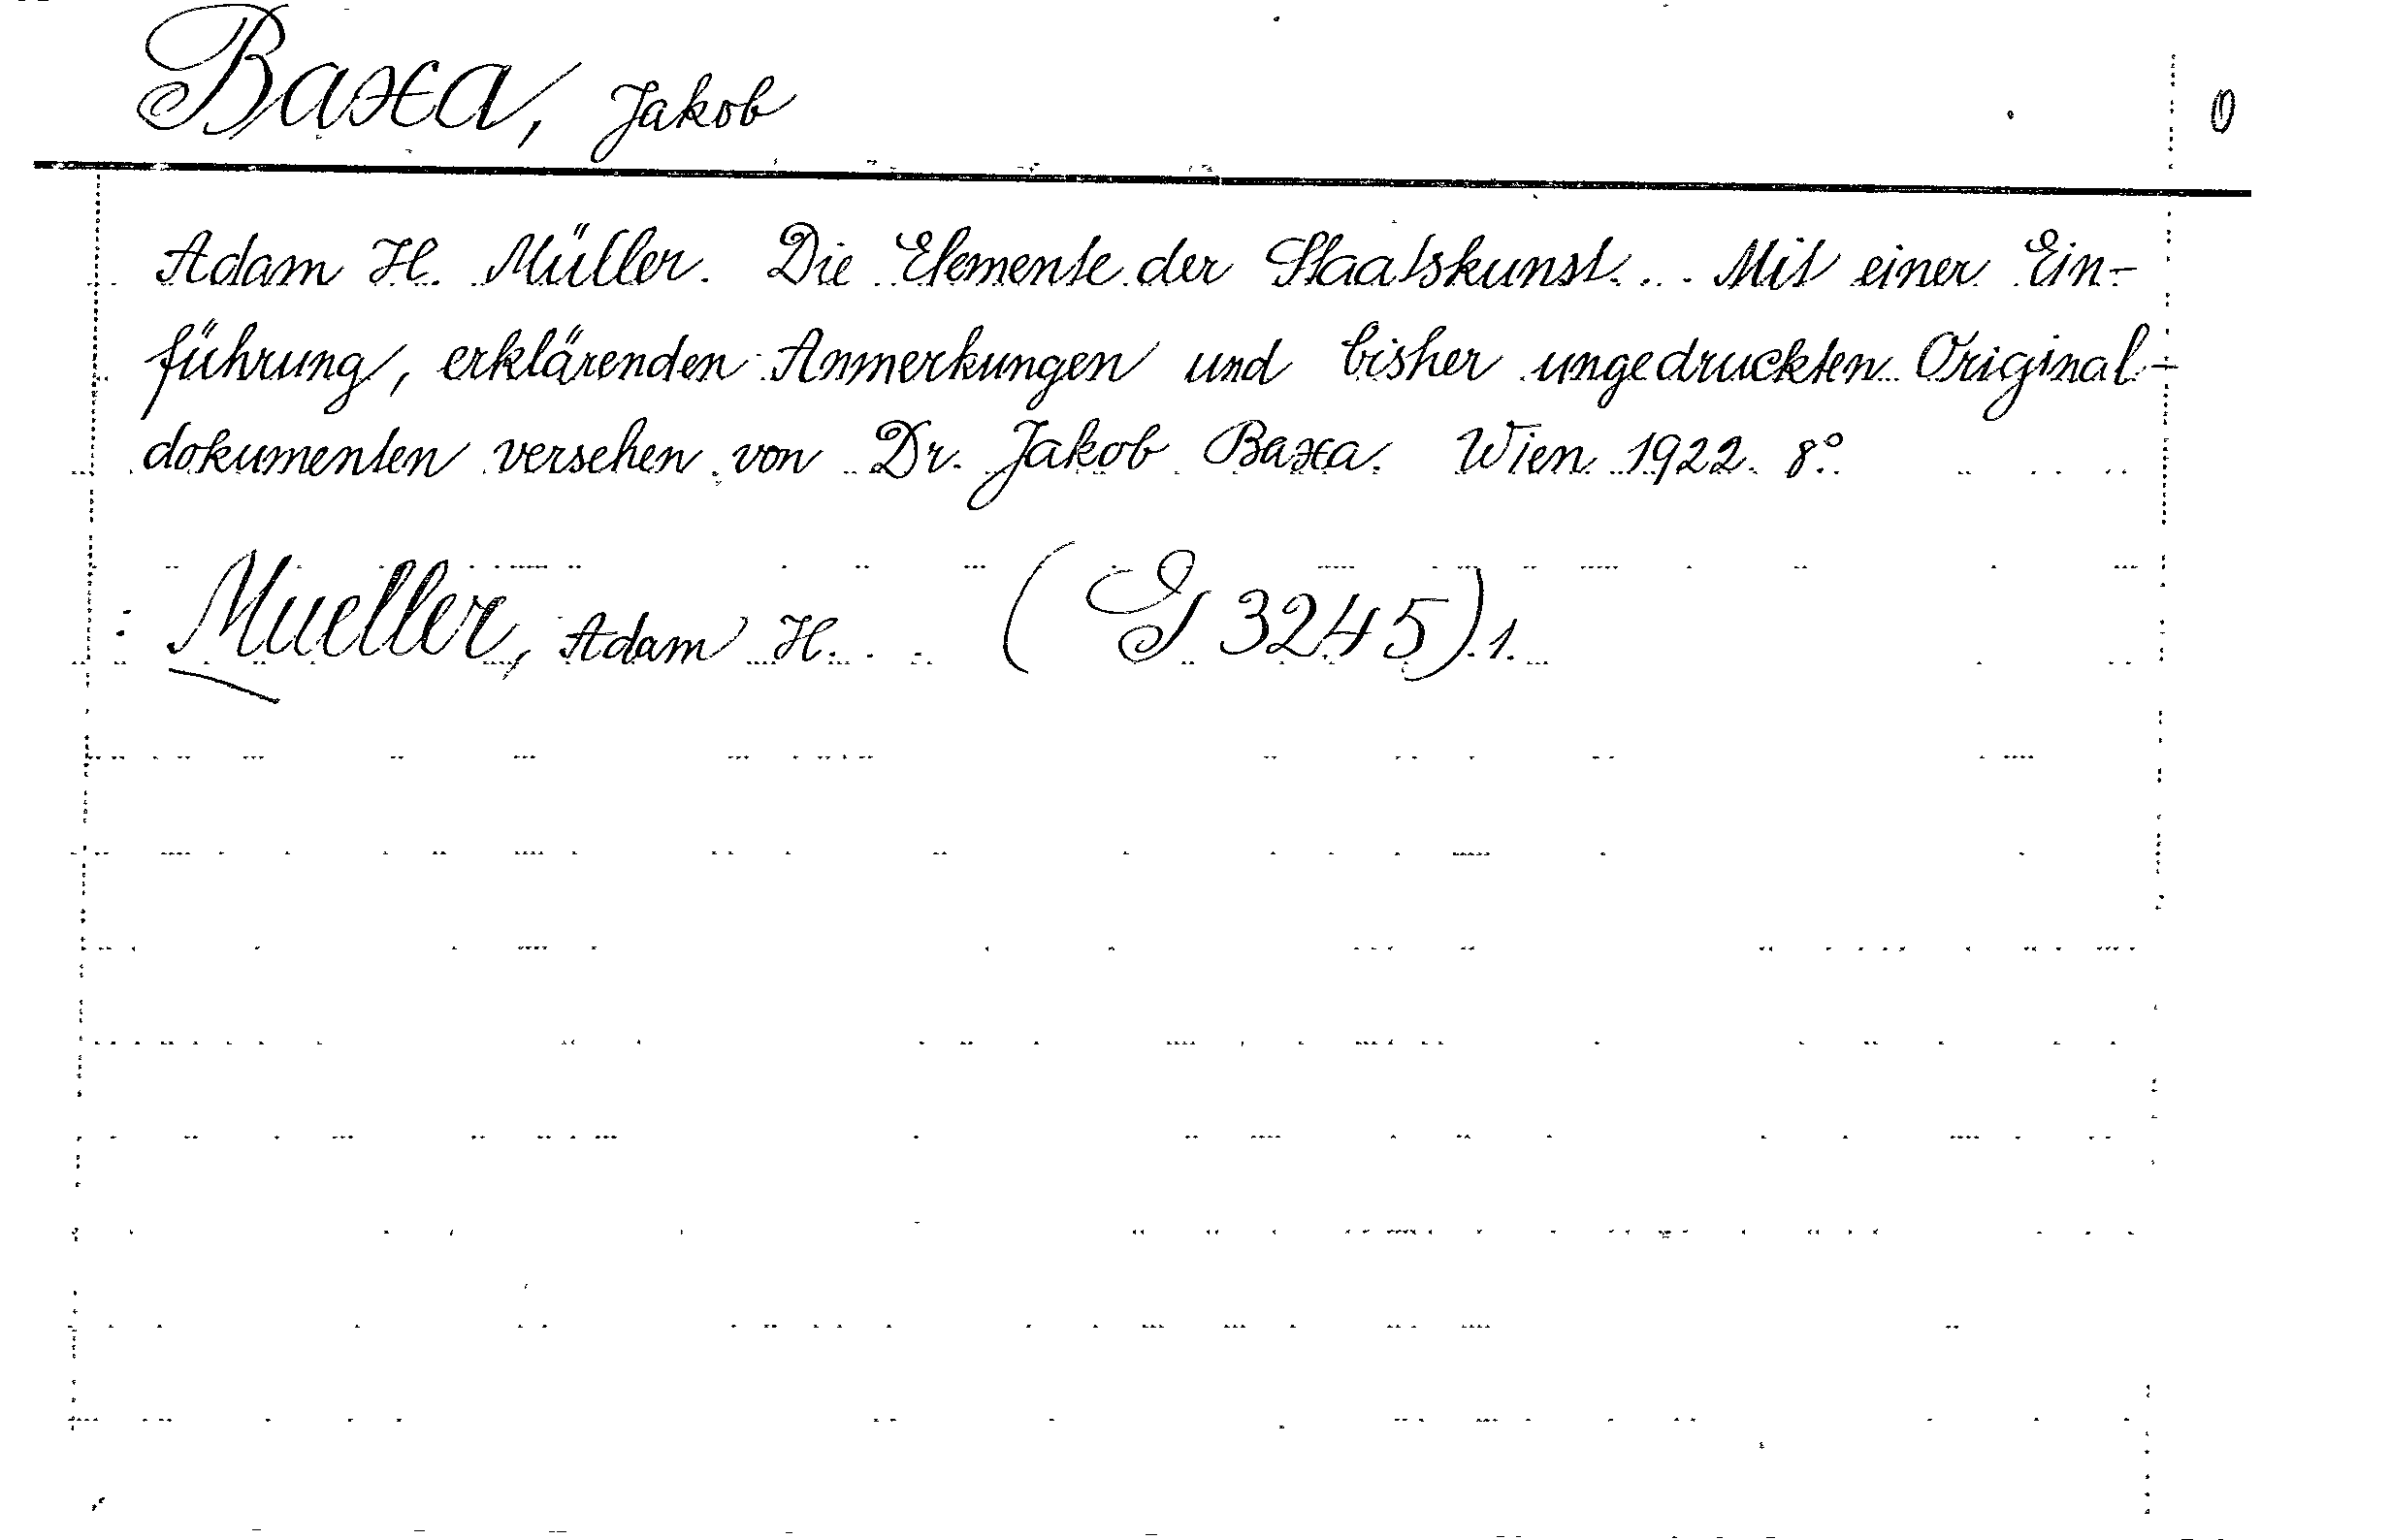 Baxa, Jakob 0
Adam H. Müller. Die Elemente der Staatskunst... Mit einer Ein-
führung, erklärenden Anmerkungen und bisher ungedruckten Original-
dokumenten versehen von Dr. Jakob Baxa. Wien 1922. 8°
: Mueller, Adam H. (I 3245) 1.